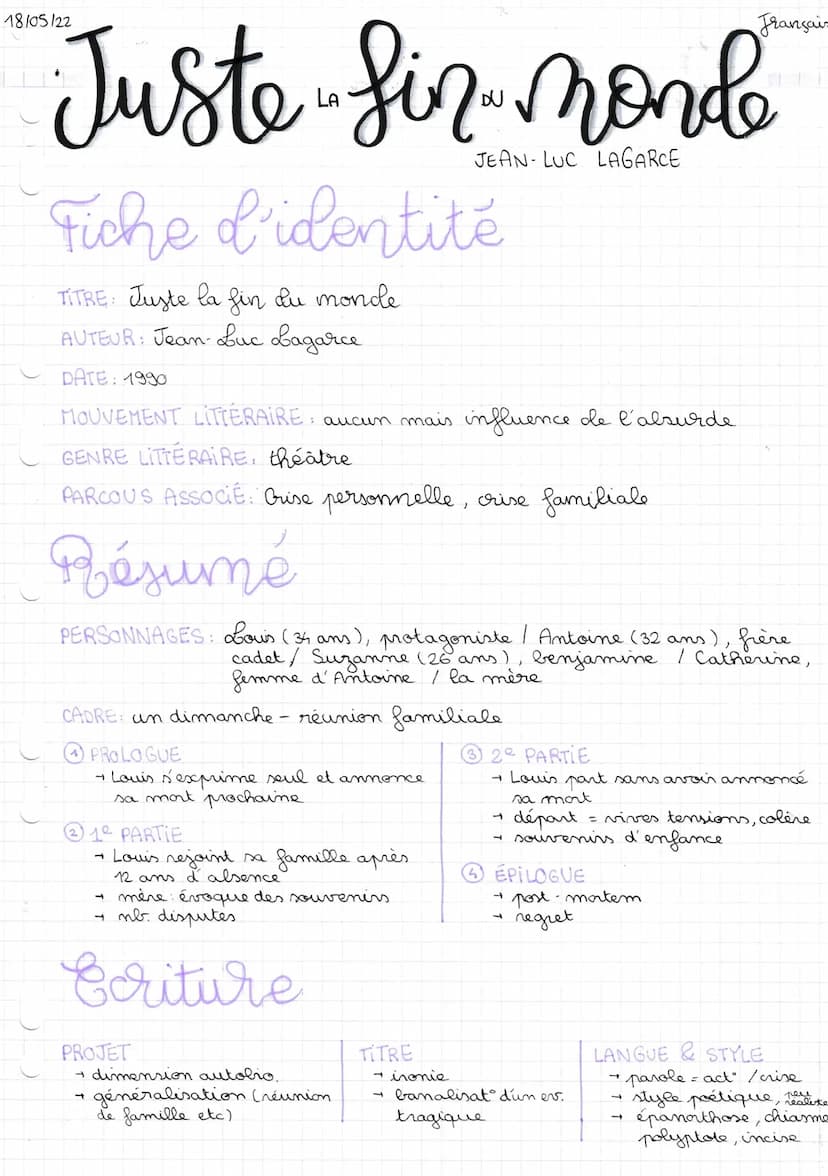 18/05/22
Français
Juste LA fin DU monde
JEAN-LUC LAGARCE
Fiche d'identité
TITRE: Juste la fin du monde
AUTEUR: Jean-Luc Lagarce
DATE: 1990
MOUVEMENT LITTÉRAIRE: aucun mais influence de l'absurde
GENRE LITTÉRAIRE: théâtre
PARCOUS ASSOCIÉ: Crise personnelle, crise familiale
Résumé
PERSONNAGES: Louis (34 ans), protagoniste / Antoine (32 ans), frère
cadet / Suzanne (26 ans), benjamine / Catherine,
femme d'Antoine / la mère
CADRE: un dimanche - réunion familiale
① PROLOGUE
→ Louis s'exprime seul et annonce
sa mort prochaine
② 1e PARTIE
→ Louis rejoint sa famille après
12 ans d'absence
→ mère: évoque des souvenirs
→ nb. disputes
③ 2e PARTIE
→ Louis part sans avoir annoncé
sa mort
→ départ = vives tensions, colère
→ souvenirs d'enfance
④ ÉPILOGUE
→ post-mortem
→ regret
Ecriture
PROJET
→ dimension autobio.
→ généralisation (réunion
de famille etc)
TITRE
→ ironie
→ banalisat° d'un ev.
tragique
LANGUE & STYLE
→ parole = act° / crise
→ style poétique, peu
réaliste
→ épanorthose, chiasme
polyptote, incise